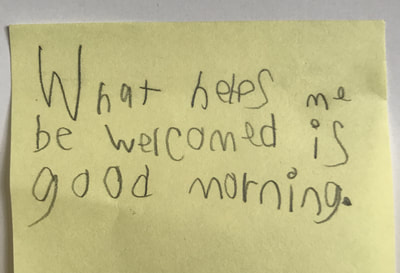 What helps me
be welcomed is
good morning.